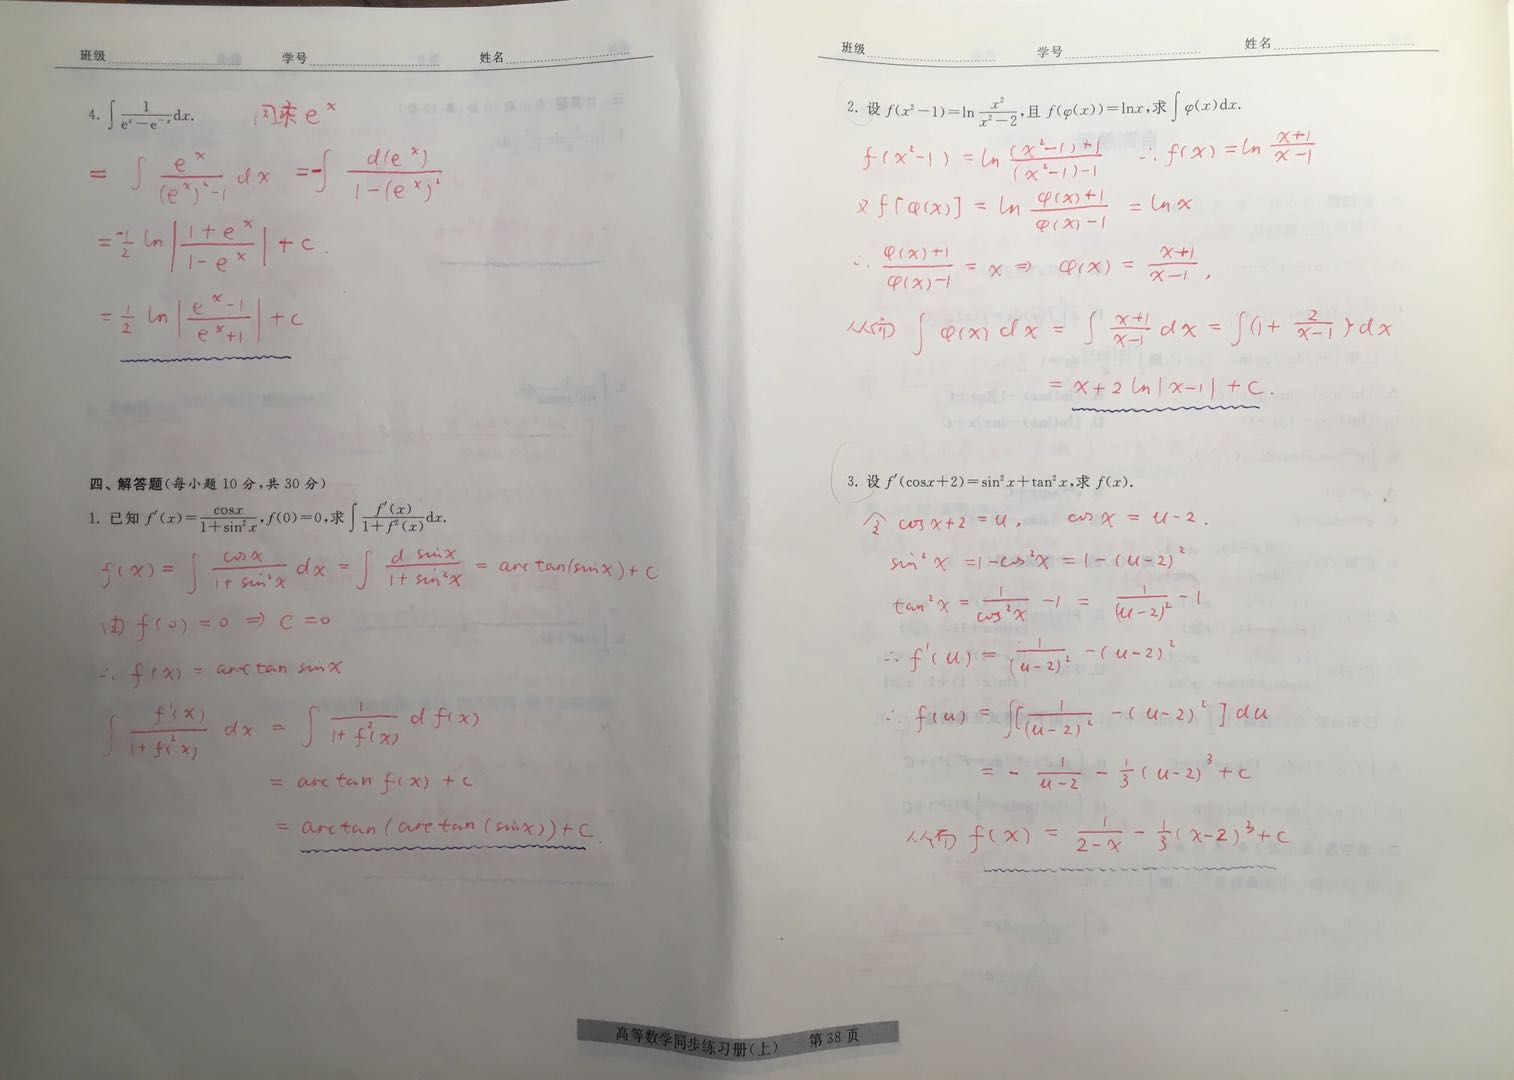 班级 学号 姓名
4. ∫ 1/(eˣ−e⁻ˣ) dx. 同乘 eˣ
= ∫ eˣ/((eˣ)²−1) dx = −∫ d(eˣ)/(1−(eˣ)²)
= −1/2 ln|(1+eˣ)/(1−eˣ)| + C.
= 1/2 ln|(eˣ−1)/(eˣ+1)| + C
四、解答题(每小题 10 分,共 30 分)
1. 已知 f′(x)=cosx/(1+sin²x), f(0)=0,求∫ f′(x)/(1+f²(x)) dx.
f(x) = ∫ cosx/(1+sin²x) dx = ∫ d sinx/(1+sin²x) = arctan(sinx)+C
由 f(0)=0 ⇒ C=0
∴ f(x) = arctan sinx
∫ f′(x)/(1+f²(x)) dx = ∫ 1/(1+f²(x)) d f(x)
= arctan f(x) + C
= arctan(arctan(sinx))+C.
班级 学号 姓名
2. 设 f(x²−1)=ln x²/(x²−2),且 f(φ(x))=lnx,求∫φ(x)dx.
f(x²−1) = ln ((x²−1)+1)/((x²−1)−1) ∴ f(x) = ln (x+1)/(x−1)
又 f[φ(x)] = ln (φ(x)+1)/(φ(x)−1) = lnx
∴ (φ(x)+1)/(φ(x)−1) = x ⇒ φ(x) = (x+1)/(x−1),
从而 ∫φ(x)dx = ∫ (x+1)/(x−1) dx = ∫(1+ 2/(x−1))dx
= x+2 ln|x−1| + C.
3. 设 f′(cosx+2)=sin²x+tan²x,求 f(x).
令 cosx+2=u, cosx = u−2.
sin²x =1−cos²x = 1−(u−2)²
tan²x = 1/cos²x −1 = 1/(u−2)² −1
∴ f′(u) = 1/(u−2)² −(u−2)²
∴ f(u) = ∫[1/(u−2)² −(u−2)²]du
= − 1/(u−2) − 1/3 (u−2)³+C
从而 f(x) = 1/(2−x) − 1/3 (x−2)³+C
高等数学同步练习册(上) 第 38 页